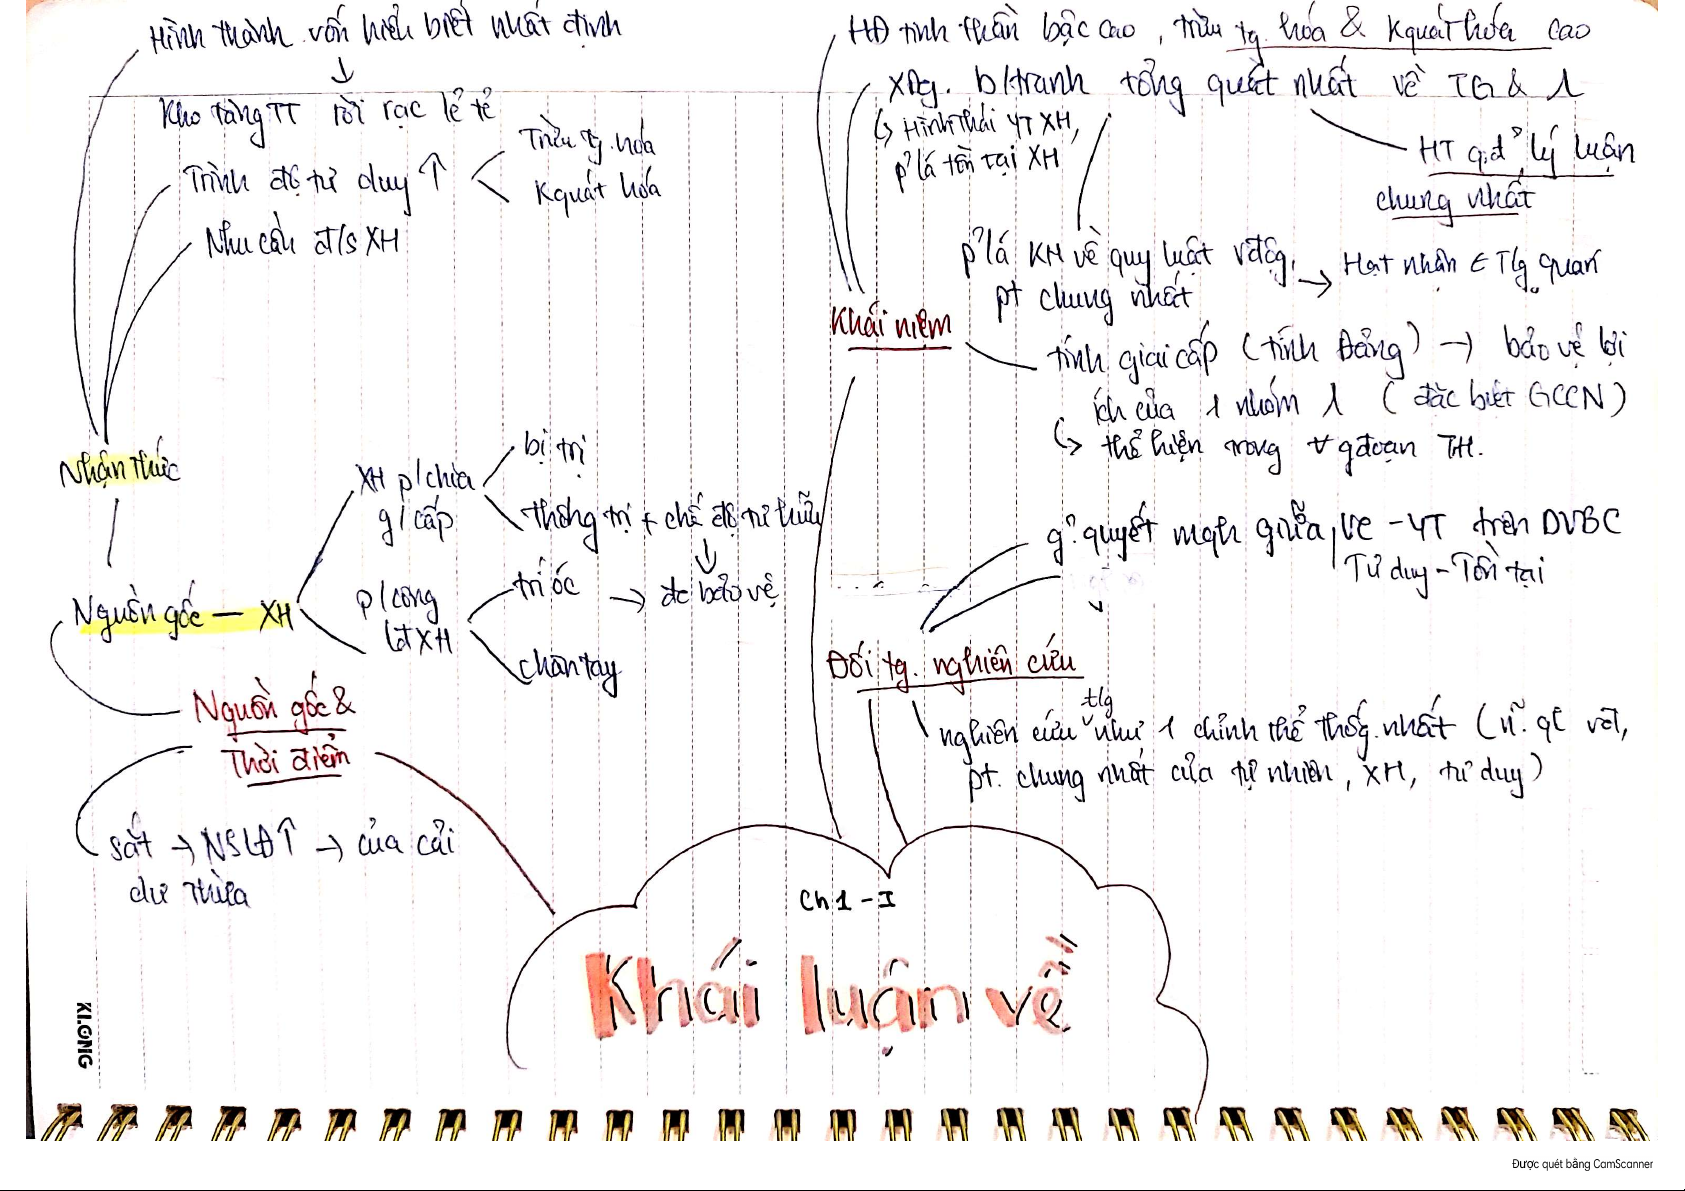 Hình thành vốn hiểu biết nhất định
↓
Kho tàng TT rời rạc lẻ tẻ
Trình độ tư duy ↑
Trừu tg. hóa
Kquát hóa
Nhu cầu đ/s XH
Nhận thức
Nguồn gốc — XH
XH p/chia
g/cấp
bị trị
thống trị + chế độ tư hữu
↓
p/công
lđ XH
trí óc
→ đc bảo vệ
chân tay
Nguồn gốc &
Thời điểm
sắt → NSLĐ↑ → của cải
dư thừa
HĐ tinh thần bậc cao, trừu tg. hóa & Kquát hóa cao
XDg. b/tranh tổng quát nhất về TG & 1
↳ Hình thái YT XH,
p² lá tồn tại XH
HT q.đ² lý luận
chung nhất
p² lá KH về quy luật vđộg,
pt chung nhất
→ Hạt nhân ∈ TG quan
Khái niệm
tính giai cấp (tính Đảng) → bảo vệ lợi
ích của 1 nhóm 1 (đặc biệt GCCN)
↳ thể hiện trong ∀ gđoạn TH.
g² quyết mqh giữa VC - YT trên DVBC
Tư duy - Tồn tại
Đối tg. nghiên cứu
tlg
nghiên cứu như 1 chỉnh thể thốg nhất (n~. ql vđ,
pt. chung nhất của tự nhiên, XH, tư duy)
Ch 1 - I
Khái luận về
KLONG
Được quét bằng CamScanner